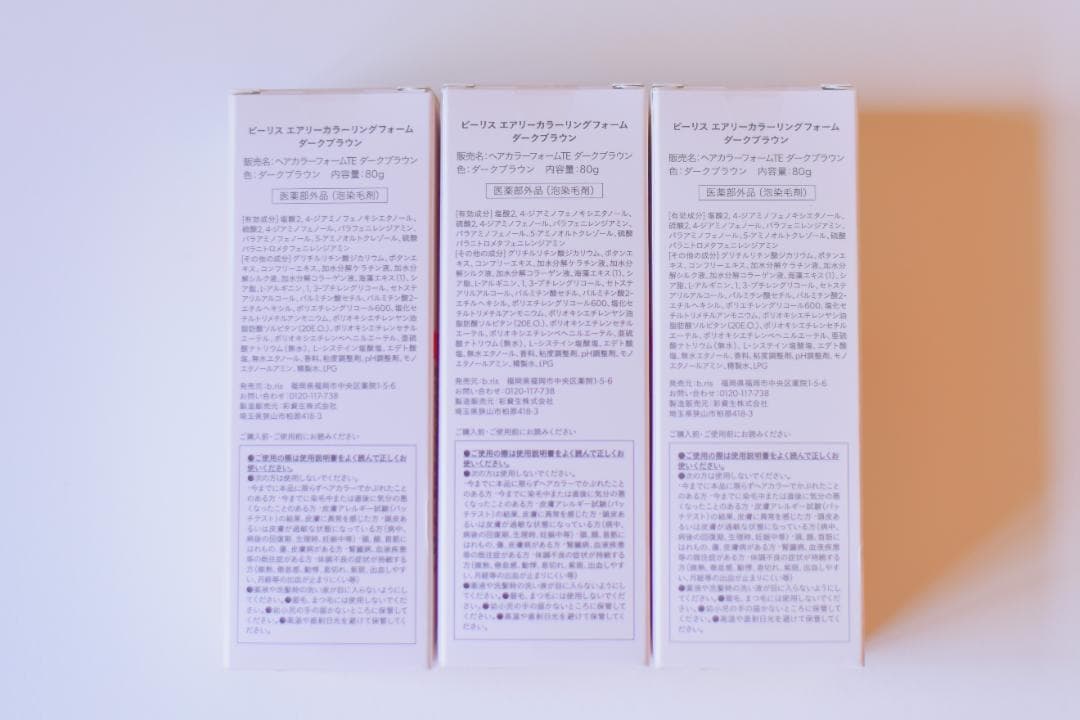 ビーリス エアリーカラーリングフォーム
ダークブラウン
販売名：ヘアカラーフォームTE ダークブラウン
色：ダークブラウン　内容量：80g
医薬部外品（泡染毛剤）
[有効成分] 塩酸2, 4-ジアミノフェノキシエタノール、
硫酸2, 4-ジアミノフェノール、パラフェニレンジアミン、
パラアミノフェノール、5-アミノオルトクレゾール、硫酸
パラニトロメタフェニレンジアミン
[その他の成分] グリチルリチン酸ジカリウム、ボタンエ
キス、コンフリーエキス、加水分解ケラチン液、加水分
解シルク液、加水分解コラーゲン液、海藻エキス（1）、シ
ア脂、L-アルギニン、1, 3-ブチレングリコール、セトステ
アリルアルコール、パルミチン酸セチル、パルミチン酸2-
エチルヘキシル、ポリエチレングリコール600、塩化セ
チルトリメチルアンモニウム、ポリオキシエチレンヤシ油
脂肪酸ソルビタン（20E.O.）、ポリオキシエチレンセチル
エーテル、ポリオキシエチレンベヘニルエーテル、亜硫
酸ナトリウム（無水）、L-システイン塩酸塩、エデト酸
塩、無水エタノール、香料、粘度調整剤、pH調整剤、モノ
エタノールアミン、精製水、LPG
発売元：b.ris　福岡県福岡市中央区薬院1-5-6
お問い合わせ：0120-117-738
製造販売元：彩資生株式会社
埼玉県狭山市柏原418-3
ご購入前・ご使用前にお読みください
●ご使用の際は使用説明書をよく読んで正しくお
使いください。
●次の方は使用しないでください。
・今までに本品に限らずヘアカラーでかぶれたこと
のある方・今までに染毛中または直後に気分の悪
くなったことのある方・皮膚アレルギー試験（パッ
チテスト）の結果、皮膚に異常を感じた方・頭皮あ
るいは皮膚が過敏な状態になっている方（病中、
病後の回復期、生理時、妊娠中等）・頭、顔、首筋に
はれもの、傷、皮膚病がある方・腎臓病、血液疾患
等の既往症がある方・体調不良の症状が持続する
方（微熱、倦怠感、動悸、息切れ、紫斑、出血しやす
い、月経等の出血が止まりにくい等）
●薬液や洗髪時の洗い液が目に入らないようにし
てください。●眉毛、まつ毛には使用しないでくだ
さい。●幼小児の手の届かないところに保管して
ください。●高温や直射日光を避けて保管してく
ださい。
ビーリス エアリーカラーリングフォーム
ダークブラウン
販売名：ヘアカラーフォームTE ダークブラウン
色：ダークブラウン　内容量：80g
医薬部外品（泡染毛剤）
[有効成分] 塩酸2, 4-ジアミノフェノキシエタノール、
硫酸2, 4-ジアミノフェノール、パラフェニレンジアミン、
パラアミノフェノール、5-アミノオルトクレゾール、硫酸
パラニトロメタフェニレンジアミン
[その他の成分] グリチルリチン酸ジカリウム、ボタンエ
キス、コンフリーエキス、加水分解ケラチン液、加水分
解シルク液、加水分解コラーゲン液、海藻エキス（1）、シ
ア脂、L-アルギニン、1, 3-ブチレングリコール、セトステ
アリルアルコール、パルミチン酸セチル、パルミチン酸2-
エチルヘキシル、ポリエチレングリコール600、塩化セ
チルトリメチルアンモニウム、ポリオキシエチレンヤシ油
脂肪酸ソルビタン（20E.O.）、ポリオキシエチレンセチル
エーテル、ポリオキシエチレンベヘニルエーテル、亜硫
酸ナトリウム（無水）、L-システイン塩酸塩、エデト酸
塩、無水エタノール、香料、粘度調整剤、pH調整剤、モノ
エタノールアミン、精製水、LPG
発売元：b.ris　福岡県福岡市中央区薬院1-5-6
お問い合わせ：0120-117-738
製造販売元：彩資生株式会社
埼玉県狭山市柏原418-3
ご購入前・ご使用前にお読みください
●ご使用の際は使用説明書をよく読んで正しくお
使いください。
●次の方は使用しないでください。
・今までに本品に限らずヘアカラーでかぶれたこと
のある方・今までに染毛中または直後に気分の悪
くなったことのある方・皮膚アレルギー試験（パッ
チテスト）の結果、皮膚に異常を感じた方・頭皮あ
るいは皮膚が過敏な状態になっている方（病中、
病後の回復期、生理時、妊娠中等）・頭、顔、首筋に
はれもの、傷、皮膚病がある方・腎臓病、血液疾患
等の既往症がある方・体調不良の症状が持続する
方（微熱、倦怠感、動悸、息切れ、紫斑、出血しやす
い、月経等の出血が止まりにくい等）
●薬液や洗髪時の洗い液が目に入らないようにし
てください。●眉毛、まつ毛には使用しないでくだ
さい。●幼小児の手の届かないところに保管して
ください。●高温や直射日光を避けて保管してく
ださい。
ビーリス エアリーカラーリングフォーム
ダークブラウン
販売名：ヘアカラーフォームTE ダークブラウン
色：ダークブラウン　内容量：80g
医薬部外品（泡染毛剤）
[有効成分] 塩酸2, 4-ジアミノフェノキシエタノール、
硫酸2, 4-ジアミノフェノール、パラフェニレンジアミン、
パラアミノフェノール、5-アミノオルトクレゾール、硫酸
パラニトロメタフェニレンジアミン
[その他の成分] グリチルリチン酸ジカリウム、ボタンエ
キス、コンフリーエキス、加水分解ケラチン液、加水分
解シルク液、加水分解コラーゲン液、海藻エキス（1）、シ
ア脂、L-アルギニン、1, 3-ブチレングリコール、セトステ
アリルアルコール、パルミチン酸セチル、パルミチン酸2-
エチルヘキシル、ポリエチレングリコール600、塩化セ
チルトリメチルアンモニウム、ポリオキシエチレンヤシ油
脂肪酸ソルビタン（20E.O.）、ポリオキシエチレンセチル
エーテル、ポリオキシエチレンベヘニルエーテル、亜硫
酸ナトリウム（無水）、L-システイン塩酸塩、エデト酸
塩、無水エタノール、香料、粘度調整剤、pH調整剤、モノ
エタノールアミン、精製水、LPG
発売元：b.ris　福岡県福岡市中央区薬院1-5-6
お問い合わせ：0120-117-738
製造販売元：彩資生株式会社
埼玉県狭山市柏原418-3
ご購入前・ご使用前にお読みください
●ご使用の際は使用説明書をよく読んで正しくお
使いください。
●次の方は使用しないでください。
・今までに本品に限らずヘアカラーでかぶれたこと
のある方・今までに染毛中または直後に気分の悪
くなったことのある方・皮膚アレルギー試験（パッ
チテスト）の結果、皮膚に異常を感じた方・頭皮あ
るいは皮膚が過敏な状態になっている方（病中、
病後の回復期、生理時、妊娠中等）・頭、顔、首筋に
はれもの、傷、皮膚病がある方・腎臓病、血液疾患
等の既往症がある方・体調不良の症状が持続する
方（微熱、倦怠感、動悸、息切れ、紫斑、出血しやす
い、月経等の出血が止まりにくい等）
●薬液や洗髪時の洗い液が目に入らないようにし
てください。●眉毛、まつ毛には使用しないでくだ
さい。●幼小児の手の届かないところに保管して
ください。●高温や直射日光を避けて保管してく
ださい。